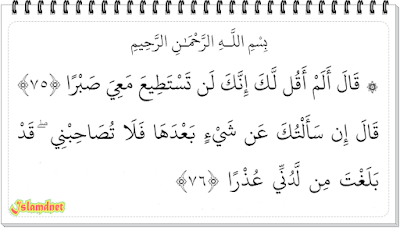 بِسْمِ اللَّـهِ الرَّحْمَـٰنِ الرَّحِيمِ
۞ قَالَ أَلَمْ أَقُل لَّكَ إِنَّكَ لَن تَسْتَطِيعَ مَعِيَ صَبْرًا ﴿٧٥﴾
قَالَ إِن سَأَلْتُكَ عَن شَيْءٍ بَعْدَهَا فَلَا تُصَاحِبْنِي ۖ قَدْ
بَلَغْتَ مِن لَّدُنِّي عُذْرًا ﴿٧٦﴾
Islamdnet